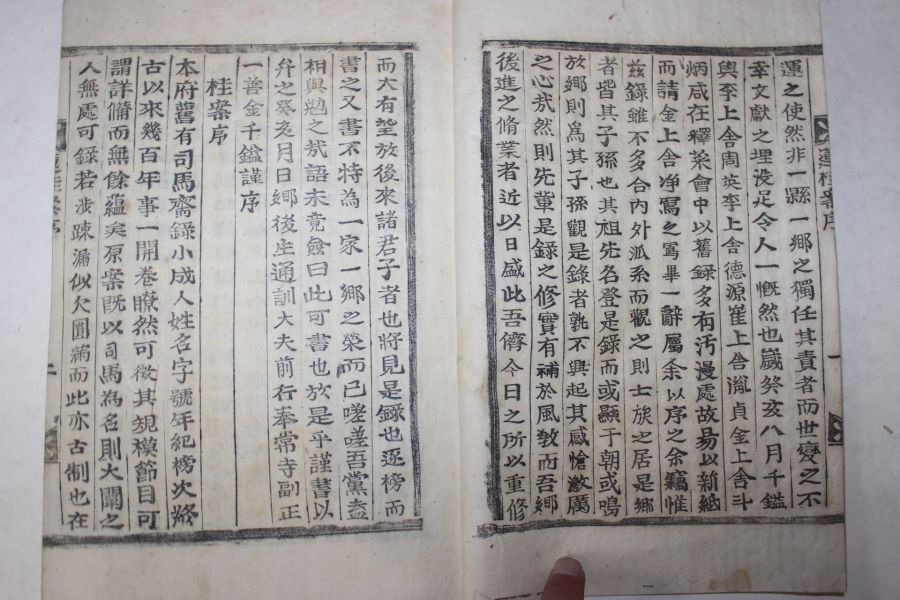 運之使然非一縣一鄉之獨任其責者而世變之不
幸文獻之埋没足令人一慨然也歲癸亥八月千鎰
與李上舍周英李上舍德源崔上舍胤貞金上舍斗
炳咸在釋菜會中以舊録多有汚漫處故易以新紙
而請金上舍净寫之寫畢一辭屬余以序之余竊惟
玆録雖不多合内外派系而觀之則士族之居是鄉
者皆其子孫也其祖先名登是録而或顯于朝或鳴
放鄉則爲其子孫觀是錄者孰不興起其感愴激厲
之心哉然則先軰是录之修實有補於風教而吾鄉
後進之脩業者近以日盛此吾儕今日之所以重修
蓮桂案序
一
而大有望放後來諸君子者也將見是録也逐榜而
書之又書不特為一家一鄉之榮而已嗟嗟吾黨盍
相與勉之哉語未竟僉曰此可書也放是乎謹書以
弁之癸亥月日鄉後生通訓大夫前行奉常寺副正
一善金千鎰謹序
桂案序
本府舊有司馬齋録小成人姓名字號年紀榜次終
古以來幾百年事一開卷瞭然可徵其規模節目可
謂詳備而無餘蘊矣原案既以司馬為名則大闡之
人無處可録若涉踈漏似欠圓滿而此亦古制也在
蓮桂案序
二